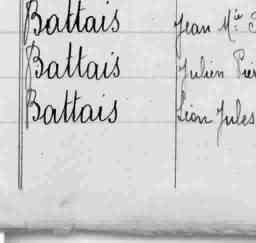 Battais Jean Mie
Battais Julien Pier
Battais Léon Jules